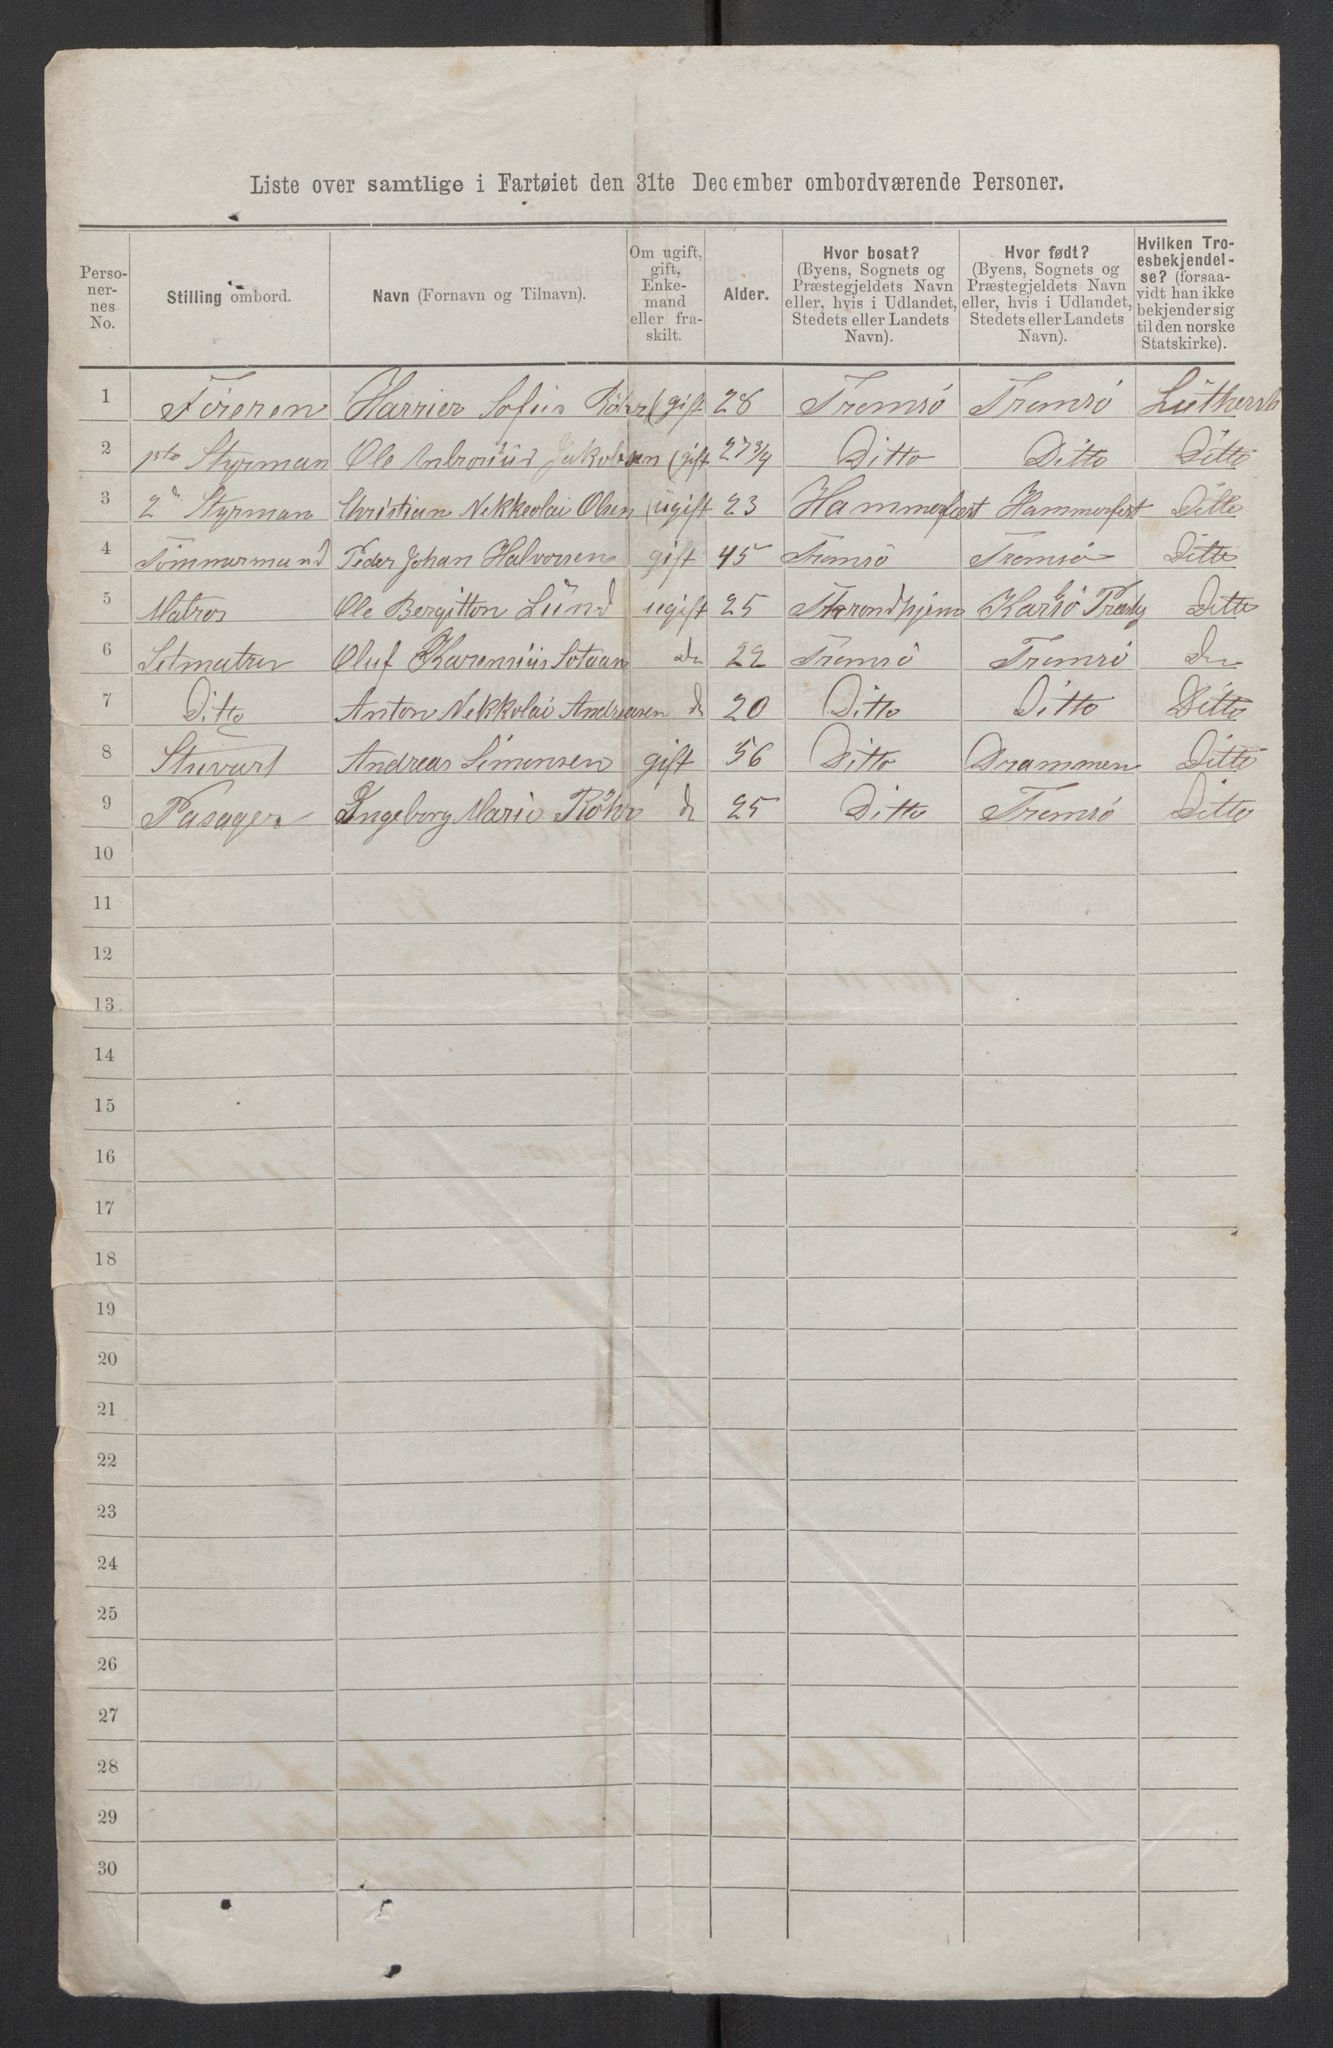 Liste over samtlige i Fartøiet den 31te December ombordværende Personer.
Perso-
ner-
nes
No.
Stilling ombord.
Navn (Fornavn og Tilnavn).
Om ugift,
gift,
Enke-
mand
eller fra-
skilt.
Alder.
Hvor bosat?
(Byens, Sognets og
Præstegjeldets Navn
eller, hvis i Udlandet,
Stedets eller Landets
Navn).
Hvor født?
(Byens, Sognets og
Præstegjeldets Navn
eller, hvis i Udlandet,
Stedets eller Landets
Navn).
Hvilken Tro-
esbekjendel-
se? (forsaa-
vidt han ikke
bekjender sig
til den norske
Statskirke).
1 Föreren Harrier Sofus Röhr (gift 28 Tromsö Tromsö
2 Styrman Ole Jakobsen (gift 27 3/4 Ditto Ditto Ditto
3 2d Styrman Christian Nekkolai Olsen (ugift 23 Hammerfest Hammerfest Ditto
4 Tömmermand Peder Johan Halvorsen gift 45 Tromsö Tromsö Ditto
5 Matros Ole Bergitton Lund ugift 25 Throndhjem Karlsö Ditto
6 Letmatros Oluf Karensius do 22 Tromsö Tromsö do
7 Ditto Anton Nekkolai Andreasen do 20 Ditto Ditto Ditto
8 Stuvart Andreas Simonsen gift 56 Ditto Drammen Ditto
9 Pasager Ingeborg Marie Röhr do 25 Ditto Tromsö Ditto
10
11
12
13
14
15
16
17
18
19
20
21
22
23
24
25
26
27
28
29
30